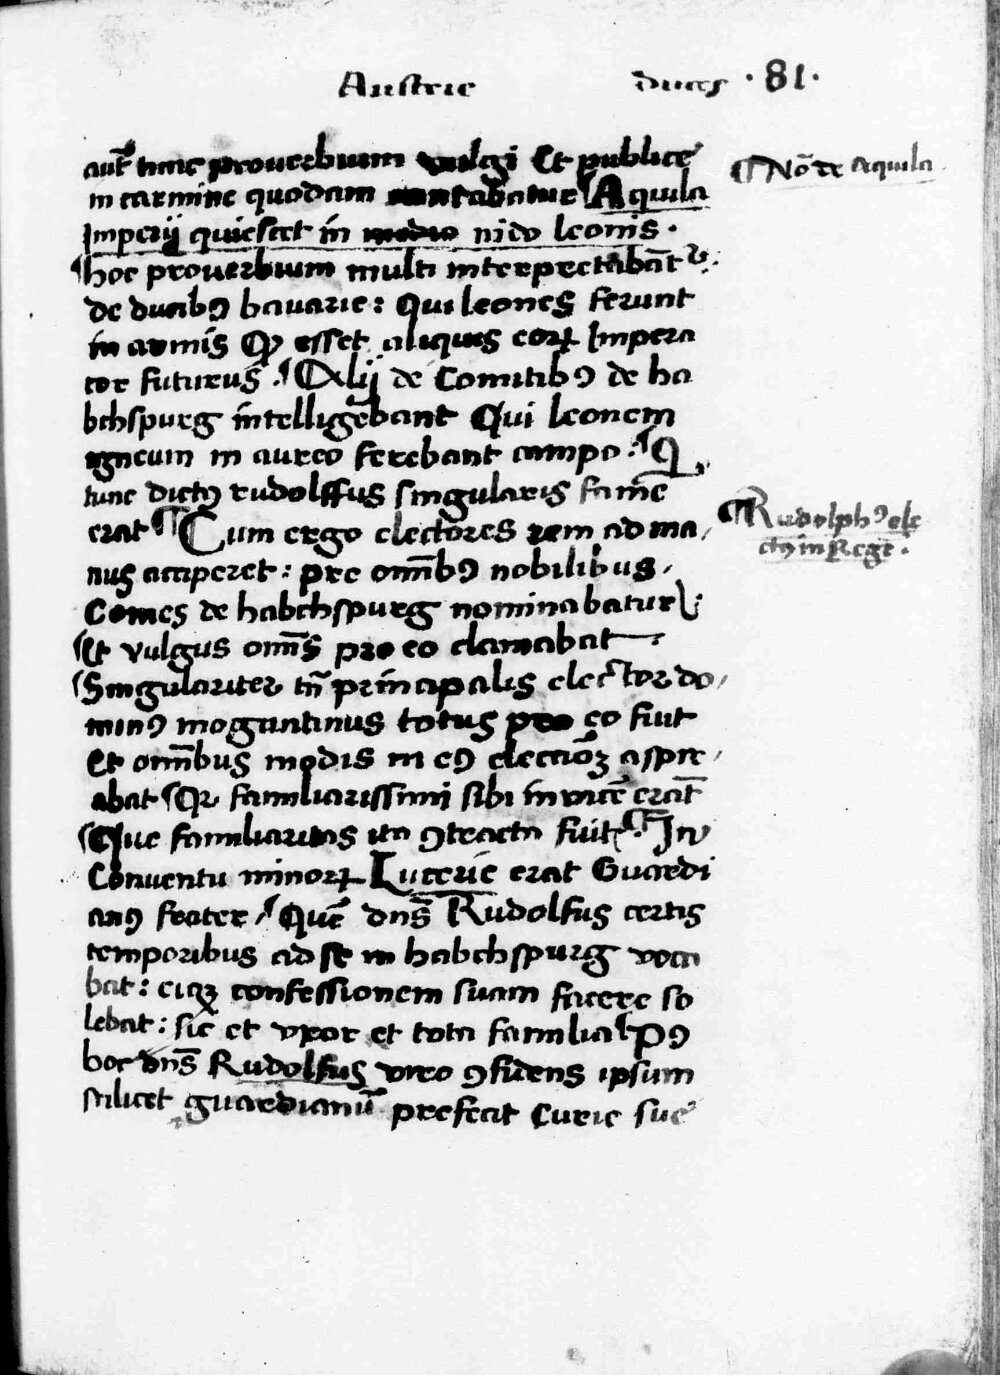 Austrie duces · 81 ·
aut̄ tunc prouerbium vulgi Et publice
in carmine quodam cantabatur Aquila
Imperij quiescet in nido leonis ·
¶ Nō de Aquila
hoc prouerbium multi interpretabāt᷑
de ducibꝰ bauarie : Qui leones ferunt
in armis Qp esset aliquis eoꝝ Impera
tor futurus . Alij de Comitibꝰ de ha
bchspurg intelligebant Qui leonem
igneum in aureo ferebant campo : Q
tunc dictꝰ rudolffus singularis fame
erat ¶ Cum ergo electores rem ad ma
nus acciperet : pre om̄ibꝰ nobilibus
Comes de habchspurg nominabatur
¶ Rudolphꝰ ele
ctꝰ in Regē .
Et vulgus om̄s pro eo clamabat
Singulariter tn̄ principalis elector do
minꝰ moguntinus totus pro eo fuit
Et om̄ibus modis in eꝰ electiōꝫ aspir
abat Qr familiarissimi sibi inuicē erāt
Que familiaritas ita ꝯtracta fuit ¶ In
Conuentu minoꝝ Lucerie erat Guardi
anꝰ frater Quē dn̄s Rudolfus certis
temporibus ad se in habchspurg voca
bat : eiqꝫ confessionem suam facere so
lebat : sic et vxor et tota familia Pꝰ
hoc dn̄s Rudolfus viro ꝯfidens ipsum
scilicet guardianū prefecit Curie sue